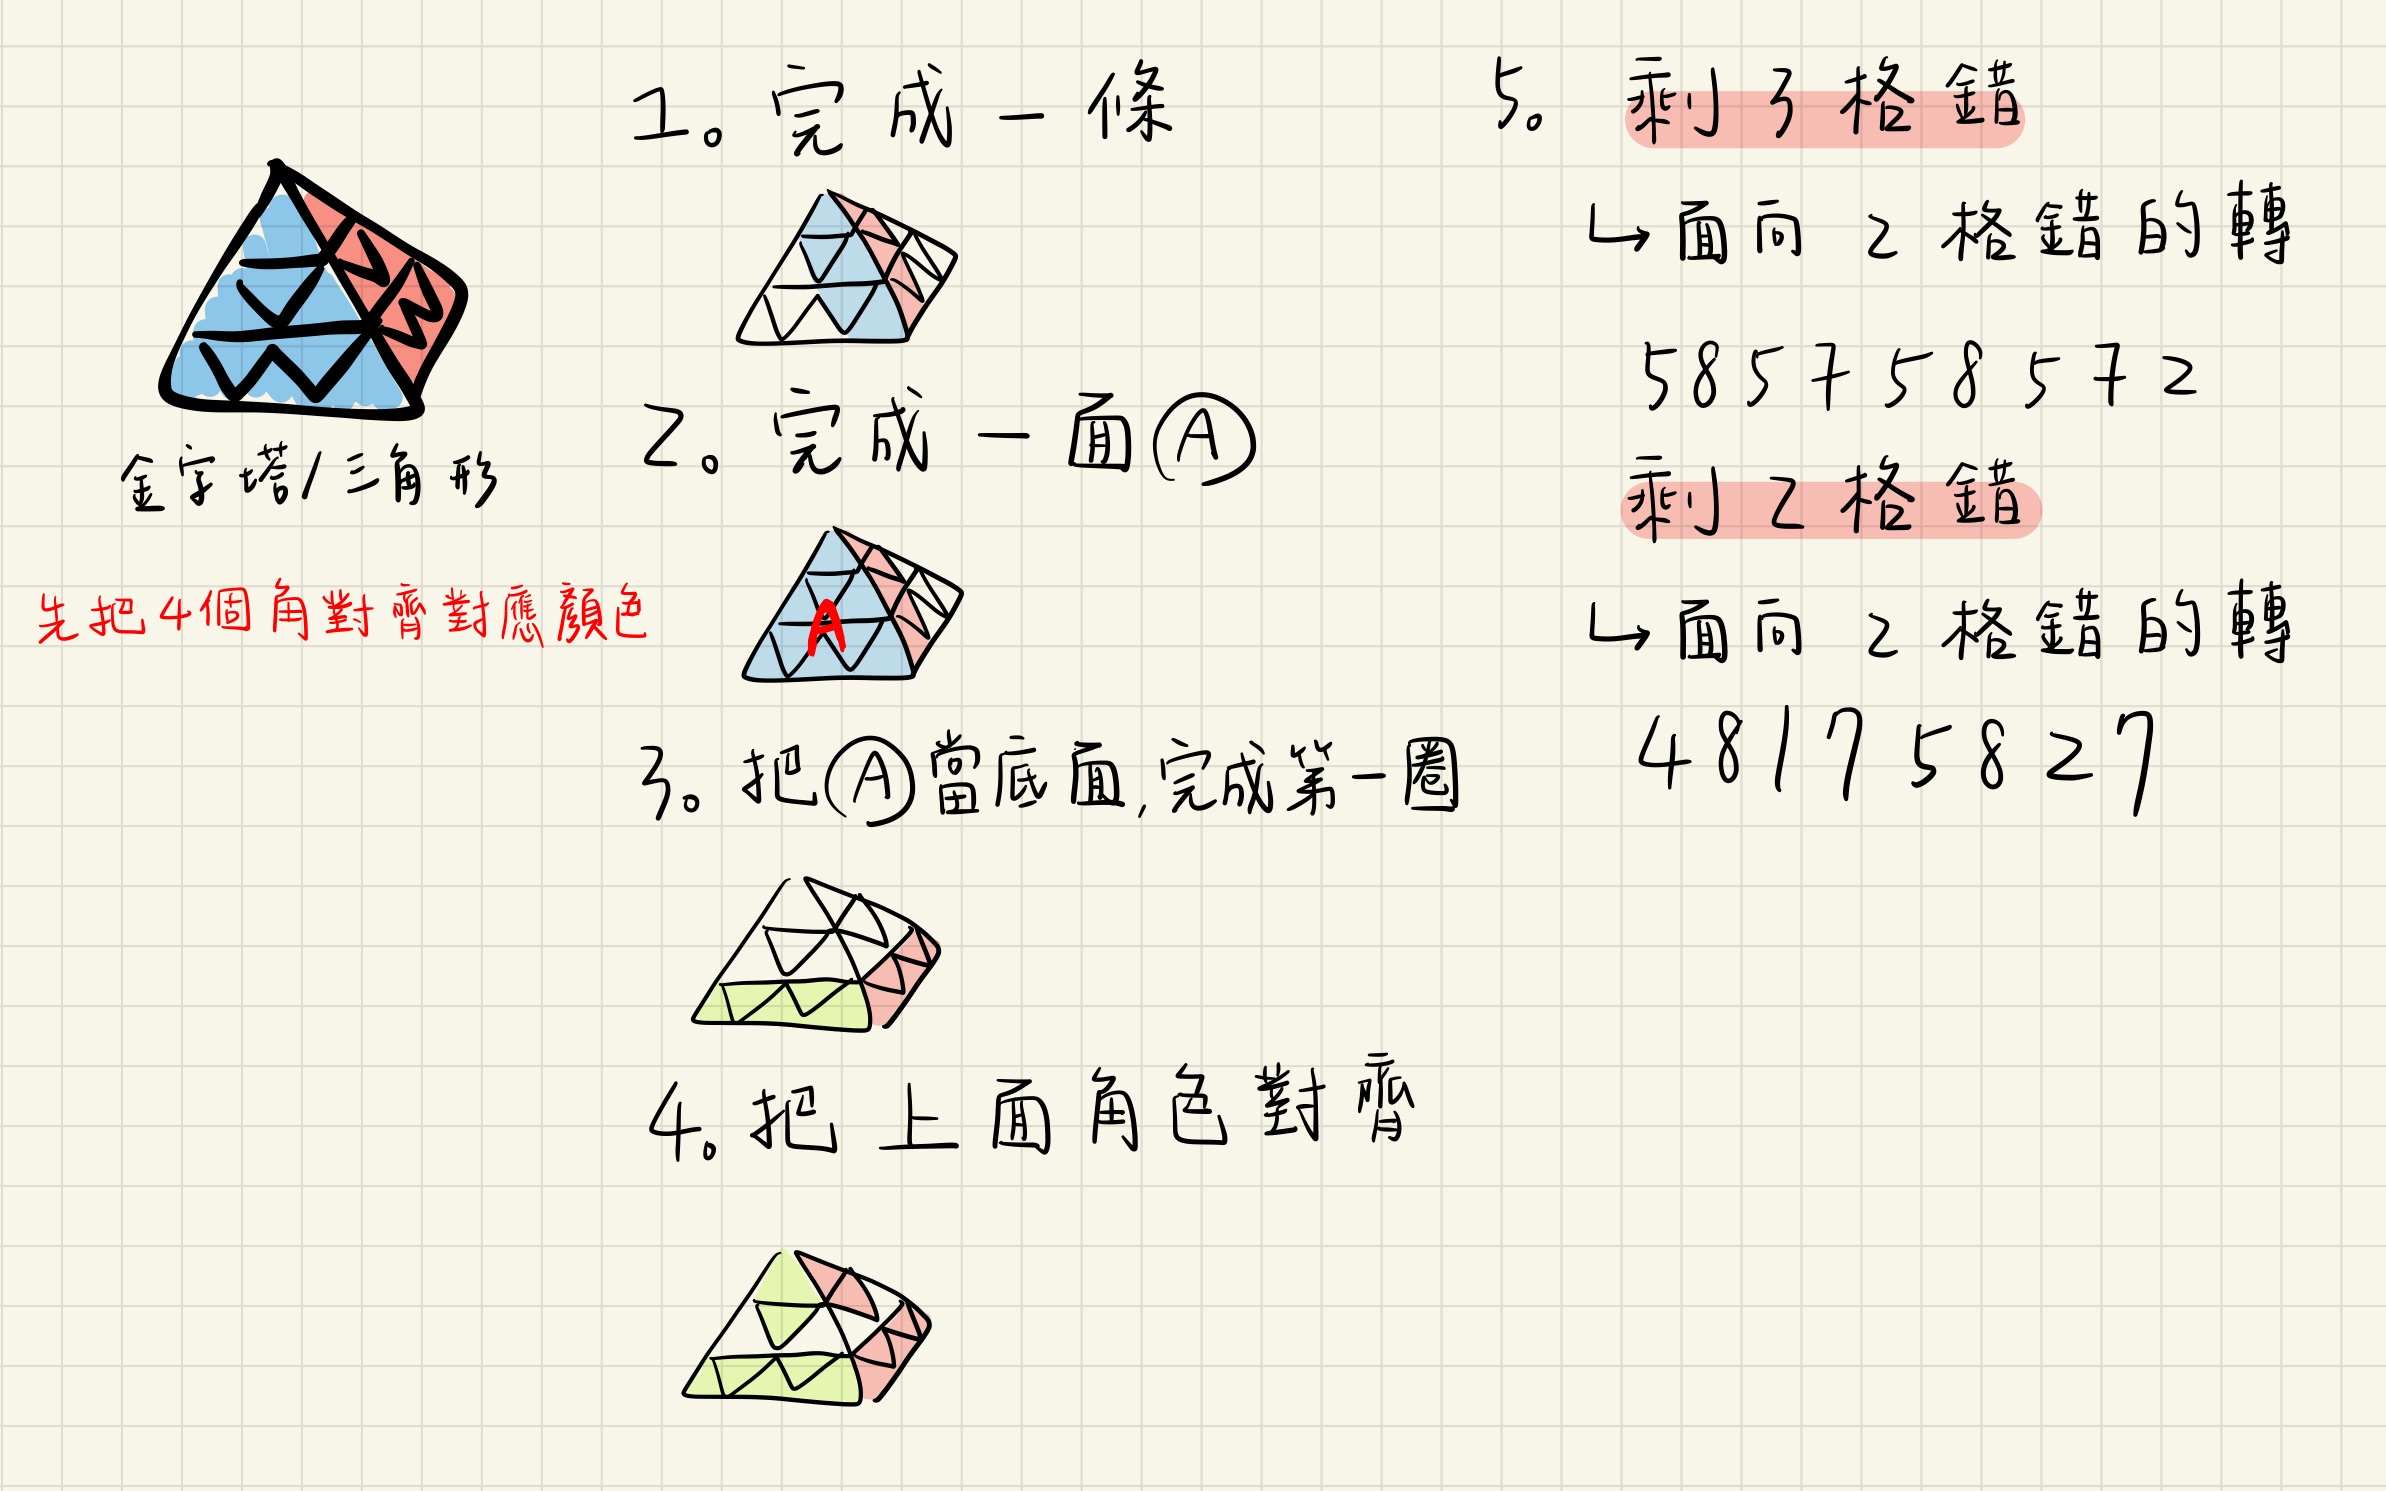 金字塔/三角形
先把4個角對齊對應顏色
1。完成一條
2。完成一面Ⓐ
A
3。把Ⓐ當底面,完成第一圈
4。把上面角色對齊
5。剩3格錯
↳面向2格錯的轉
585758572
剩2格錯
↳面向2格錯的轉
48175827